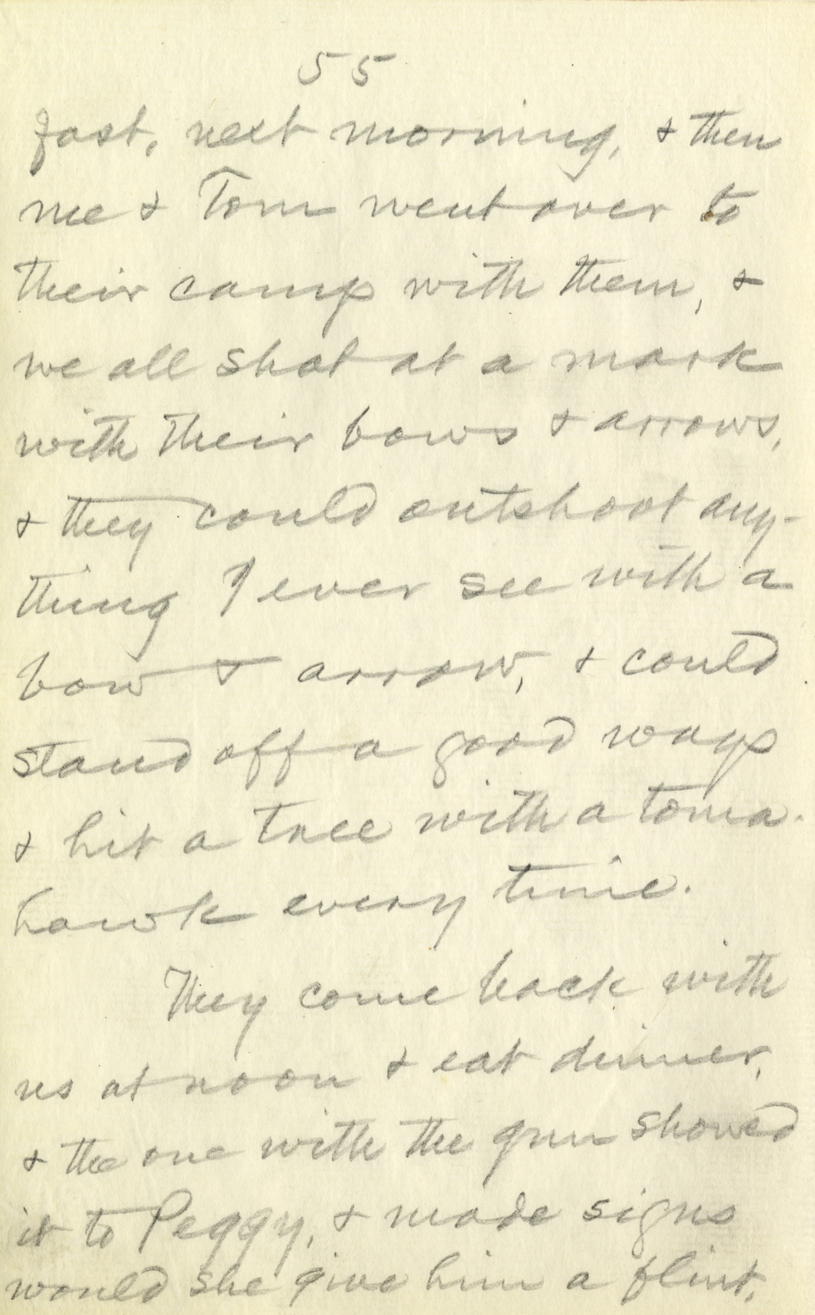 55
fast, next morning, & then
me & Tom went over to
their camp with them, &
we all shot at a mark
with their bows & arrows,
& they could outshoot any-
thing I ever see with a
bow & arrow, & could
stand off a good ways
& hit a tree with a toma-
hawk every time.
They come back with
us at noon & eat dinner,
& the one with the gun showed
it to Peggy, & made signs
would she give him a flint,